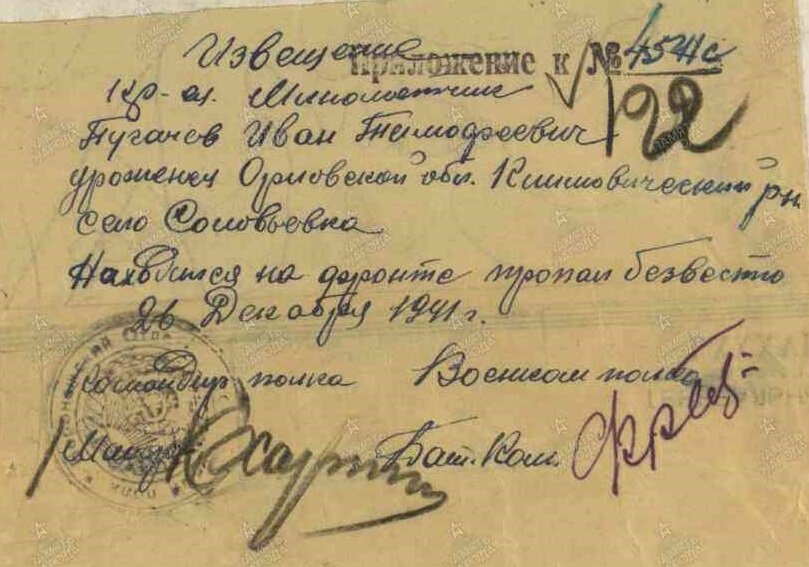 Извещение
Приложение к № 4541с
122
Кр-ец. Минометчик
Пугачев Иван Тимофеевич
уроженец Орловской обл. Климовический р-н.
село Соловьевка
Находился на фронте пропал безвестно
26 Декабря 1941 г.
Командир полка Военком полка
Майор Бат. Ком.